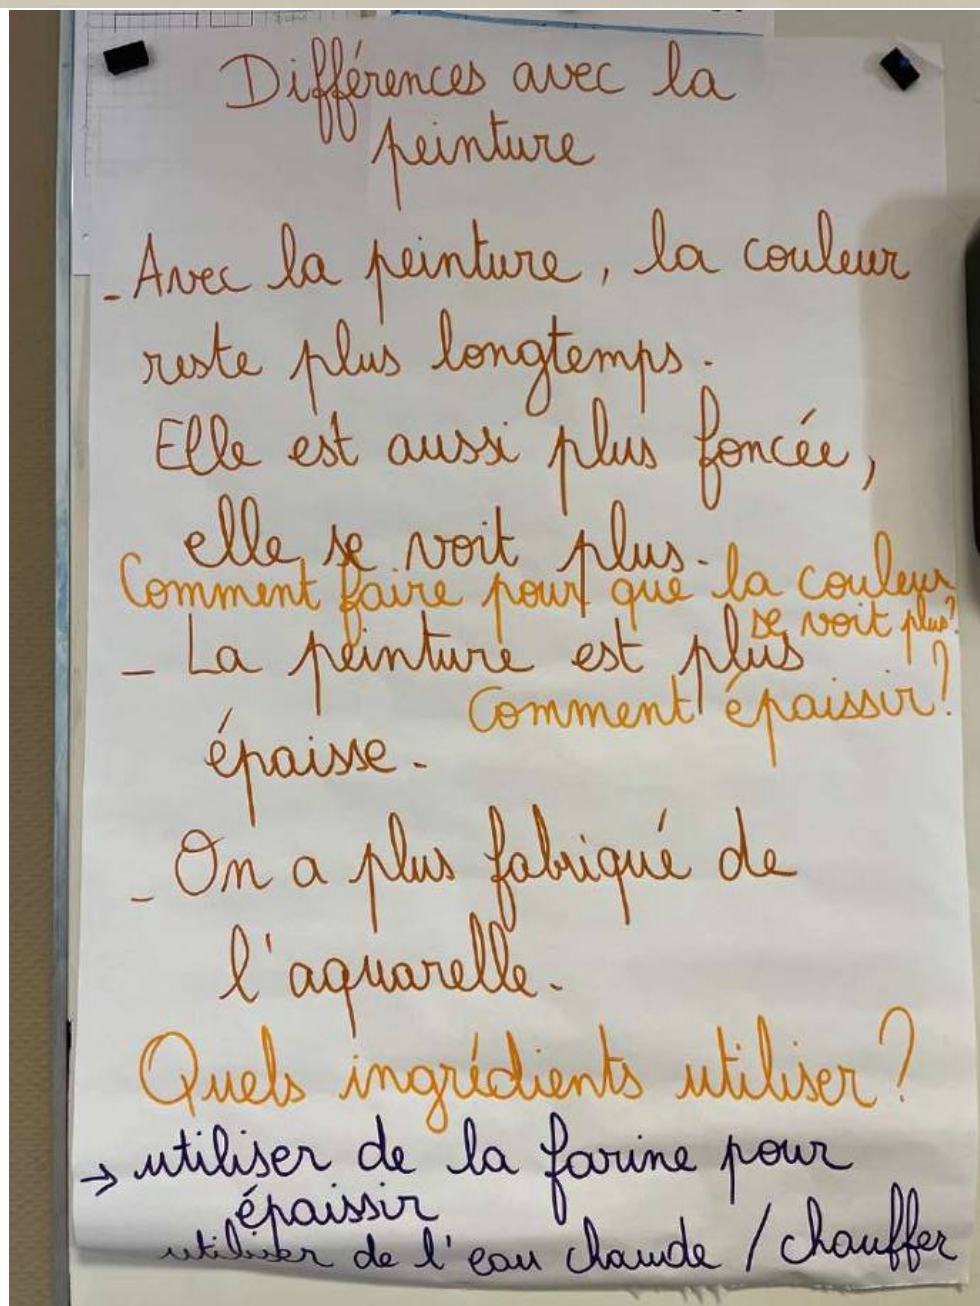 Différences avec la
peinture
- Avec la peinture, la couleur
reste plus longtemps.
Elle est aussi plus foncée,
elle se voit plus.
Comment faire pour que la couleur
se voit plus?
- La peinture est plus
Comment épaissir?
épaisse.
- On a plus fabriqué de
l'aquarelle.
Quels ingrédients utiliser?
→ utiliser de la farine pour
épaissir
utiliser de l'eau chaude / chauffer